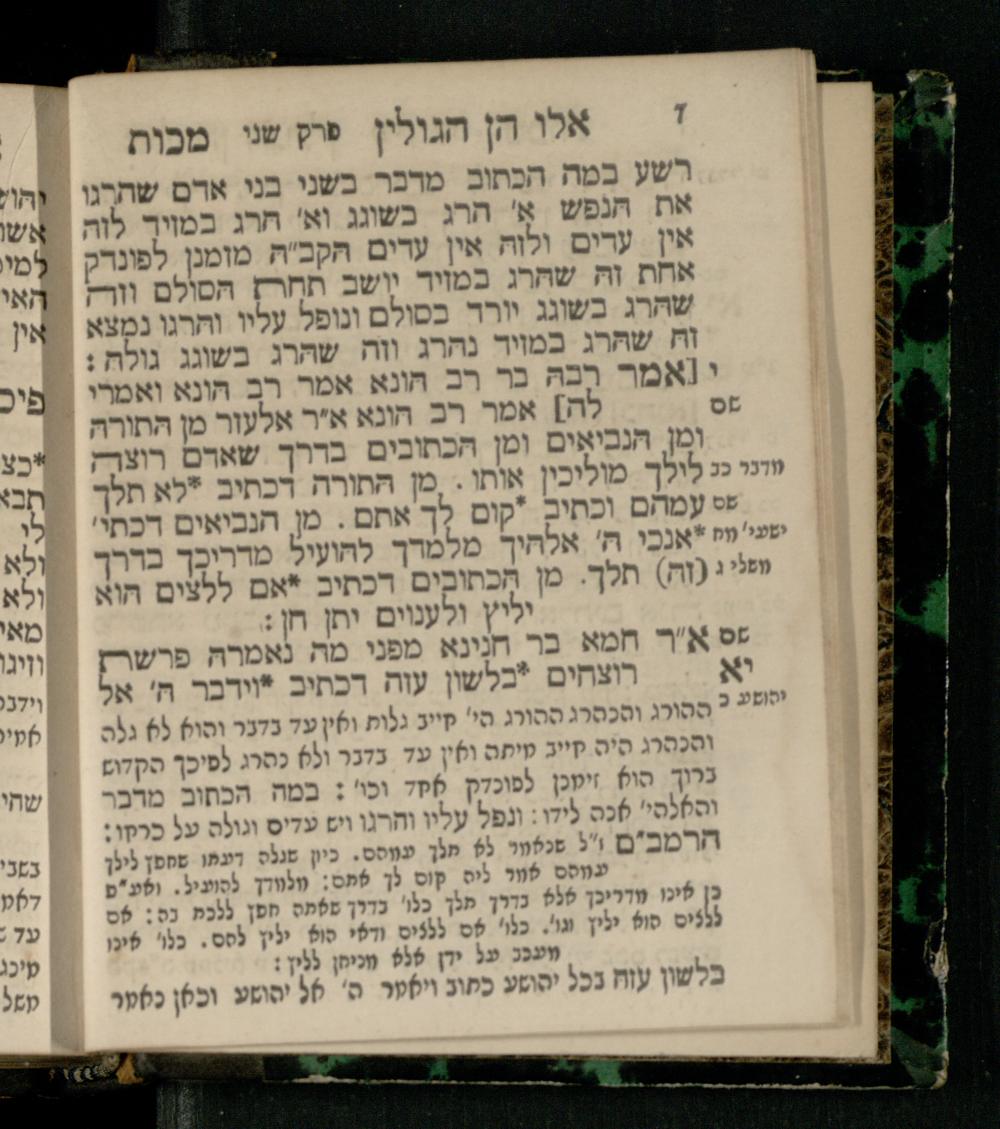 ד
אלו הן הגולין פרק שני מכות
רשע במה הכתוב מדבר בשני בני אדם שהרגו
את הנפש א' הרג בשוגג וא' הרג במזיד לזה
אין עדים ולזה אין עדים הקב"ה מזמנן לפונדק
אחת זה שהרג במזיד יושב תחת הסולם וזה
שהרג בשוגג יורד בסולם ונופל עליו והרגו נמצא
זה שהרג במזיד נהרג וזה שהרג בשוגג גולה :
י [אמר רבה בר רב הונא אמר רב הונא ואמרי
שם לה] אמר רב הונא א"ר אלעזר מן התורה
ומן הנביאים ומן הכתובים בדרך שאדם רוצה
מדבר כב לילך מוליכין אותו . מן התורה דכתיב *לא תלך
שם עמהם וכתיב *קום לך אתם . מן הנביאים דכתי'
ישעי' מח *אנכי ה' אלהיך מלמדך להועיל מדריכך בדרך
משלי ג (זה) תלך . מן הכתובים דכתיב *אם ללצים הוא
יליץ ולענוים יתן חן :
שם א"ר חמא בר חנינא מפני מה נאמרה פרשת
יא רוצחים *בלשון עזה דכתיב *וידבר ה' אל
יהושע כ ההורג והנהרג ההורג הי' חייב גלות ואין עד בדבר והוא לא גלה
והנהרג היה חייב מיתה ואין עד בדבר ולא נהרג לפיכך הקדוש
ברוך הוא זימנן לפונדק אחד וכו' : במה הכתוב מדבר
והאלהי' אנה לידו : ונפל עליו והרגו ויש עדים וגולה על כרחו :
הרמב"ם ז"ל שנאמר לא תלך עמהם . כיון שגלה דעתו שחפץ לילך
עמהם אמר ליה קום לך אתם : מלמדך להועיל . ואע"פ
כן אינו מדריכך אלא בדרך תלך כלו' בדרך שאתה חפץ ללכת בה : אם
ללצים הוא יליץ וגו' . כלו' אם ללצים ודאי הוא יליץ להם . כלו' אינו
מעכב על ידן אלא מניחן לליץ :
בלשון עזה בכל יהושע כתוב ויאמר ה' אל יהושע וכאן נאמר